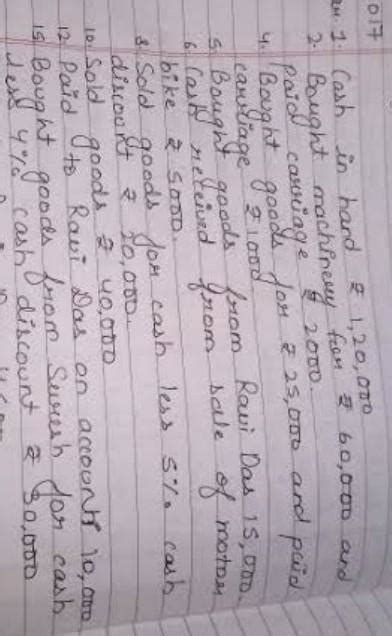 017
an. 1. Cash in hand ₹ 1,20,000
2. Bought machinery for ₹ 60,000 and
paid carriage ₹ 2000.
4. Bought goods for ₹ 25,000 and paid
carriage ₹ 1000
5. Bought goods from Ravi Das 15,000
6. Cash received from sale of motor
bike ₹ 5000.
8. Sold goods for cash less 5% cash
discount ₹ 20,000.
10. Sold goods ₹ 40,000
12. Paid to Ravi Das on account 10,000
15. Bought goods from Suresh for cash
less 4% cash discount ₹ 30,000